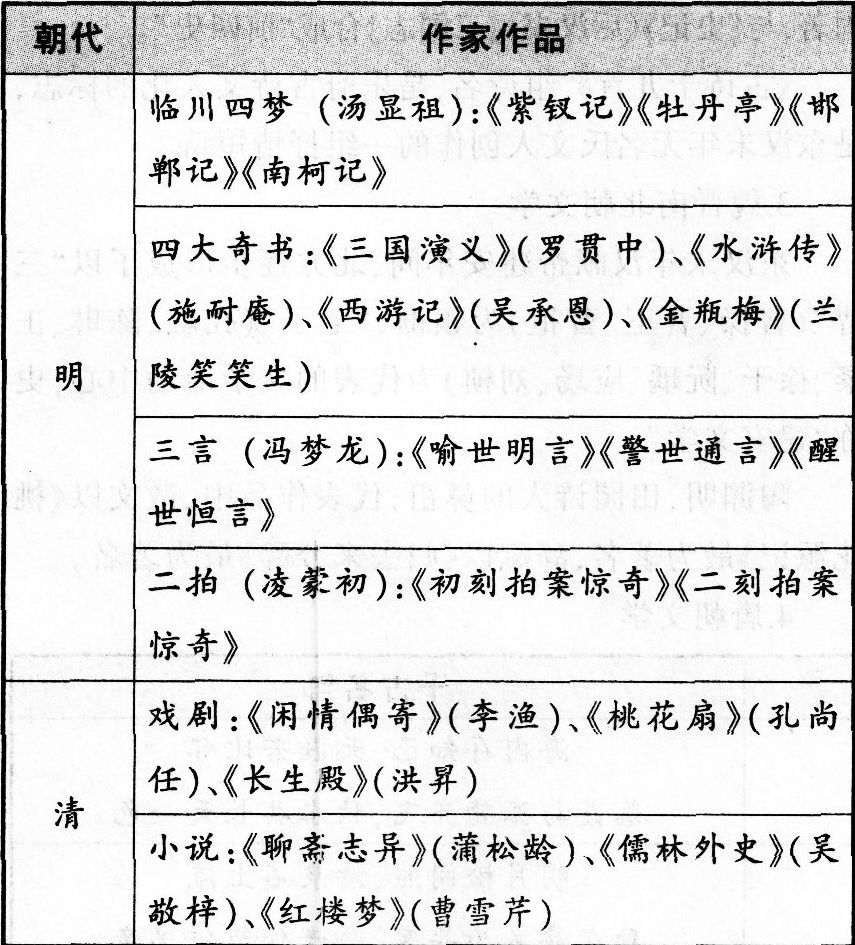 朝代 作家作品
临川四梦（汤显祖）：《紫钗记》《牡丹亭》《邯
郸记》《南柯记》
四大奇书：《三国演义》（罗贯中）、《水浒传》
（施耐庵）、《西游记》（吴承恩）、《金瓶梅》（兰
陵笑笑生）
明
三言（冯梦龙）：《喻世明言》《警世通言》《醒
世恒言》
二拍（凌蒙初）：《初刻拍案惊奇》《二刻拍案
惊奇》
戏剧：《闲情偶寄》（李渔）、《桃花扇》（孔尚
任）、《长生殿》（洪昇）
清
小说：《聊斋志异》（蒲松龄）、《儒林外史》（吴
敬梓）、《红楼梦》（曹雪芹）